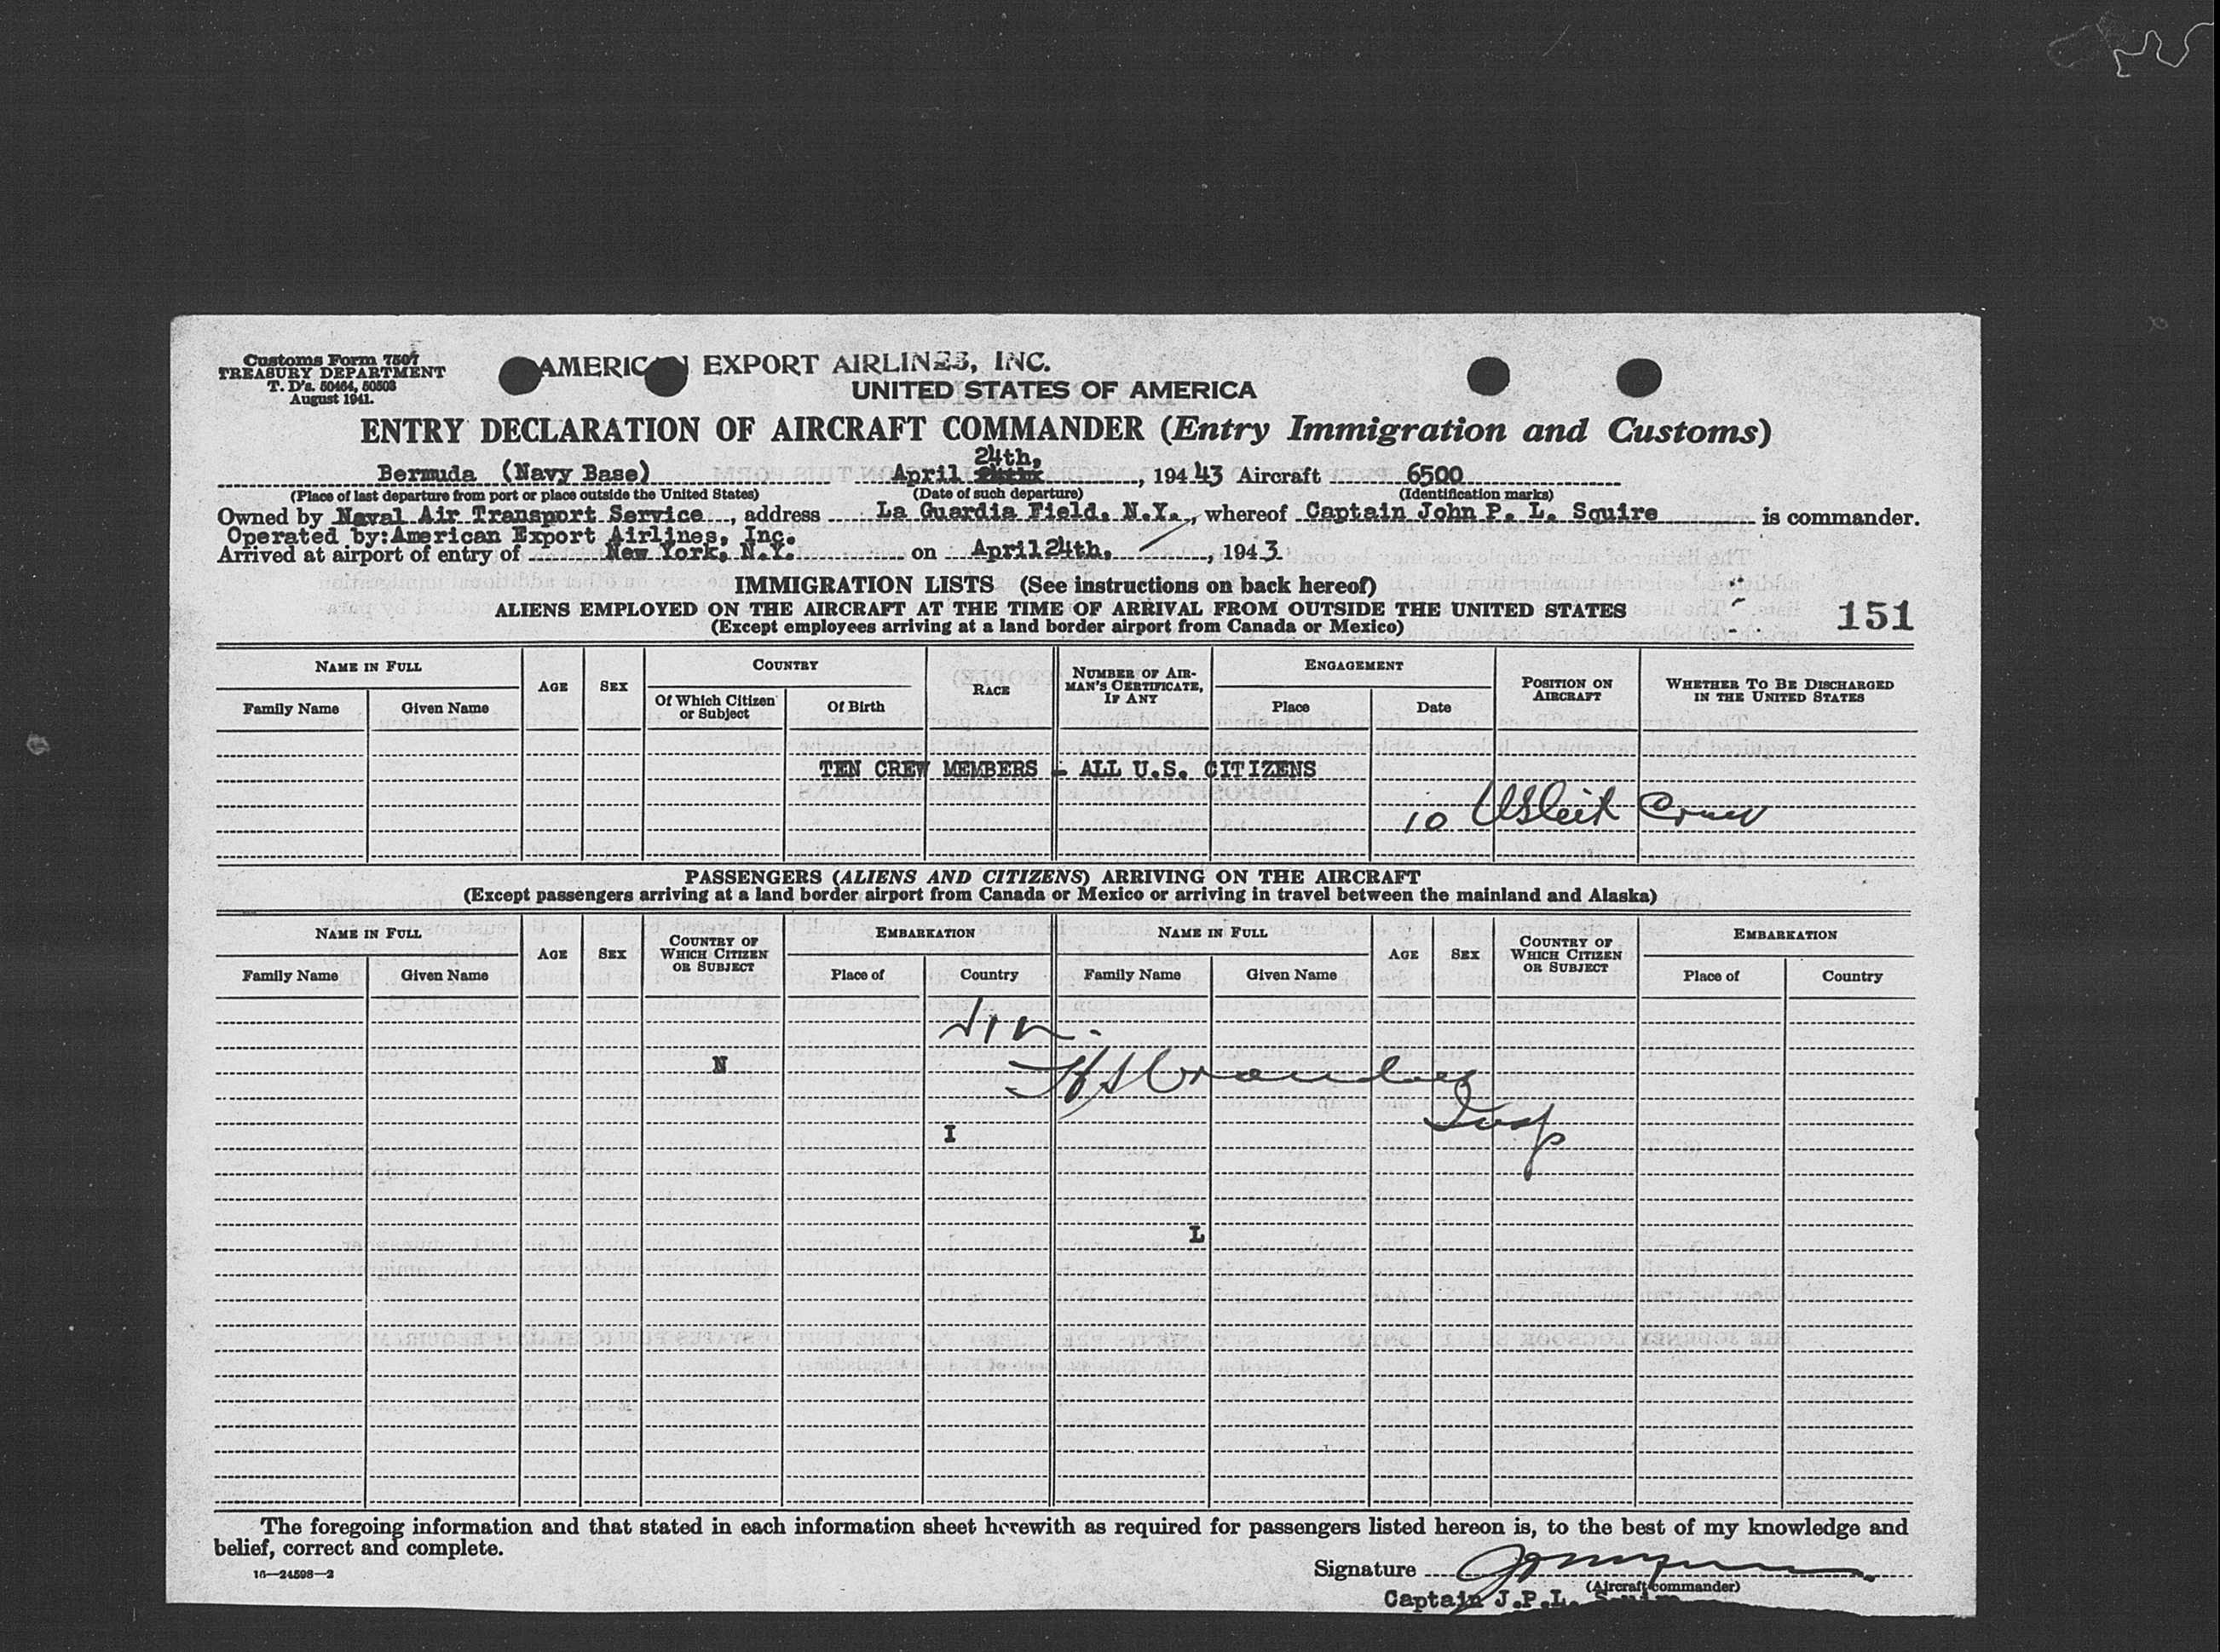 Customs Form 7507
TREASURY DEPARTMENT
T. D's. 50464, 50503
August 1941.
AMERICAN EXPORT AIRLINES, INC.
UNITED STATES OF AMERICA
ENTRY DECLARATION OF AIRCRAFT COMMANDER (Entry Immigration and Customs)
24th,
Bermuda (Navy Base) April , 194 43 Aircraft 6500
(Place of last departure from port or place outside the United States) (Date of such departure) (Identification marks)
Owned by Naval Air Transport Service, address La Guardia Field, N.Y., whereof Captain John P. L. Squire is commander.
Operated by:American Export Airlines, Inc.
Arrived at airport of entry of New York, N.Y. on April 24th, , 1943
IMMIGRATION LISTS (See instructions on back hereof)
ALIENS EMPLOYED ON THE AIRCRAFT AT THE TIME OF ARRIVAL FROM OUTSIDE THE UNITED STATES
(Except employees arriving at a land border airport from Canada or Mexico)
151
NAME IN FULL AGE SEX COUNTRY RACE NUMBER OF AIRMAN'S CERTIFICATE, IF ANY ENGAGEMENT POSITION ON AIRCRAFT WHETHER TO BE DISCHARGED IN THE UNITED STATES
Family Name Given Name Of Which Citizen or Subject Of Birth Place Date
TEN CREW MEMBERS - ALL U.S. CITIZENS
10 US Crew
PASSENGERS (ALIENS AND CITIZENS) ARRIVING ON THE AIRCRAFT
(Except passengers arriving at a land border airport from Canada or Mexico or arriving in travel between the mainland and Alaska)
NAME IN FULL AGE SEX COUNTRY OF WHICH CITIZEN OR SUBJECT EMBARKATION NAME IN FULL AGE SEX COUNTRY OF WHICH CITIZEN OR SUBJECT EMBARKATION
Family Name Given Name Place of Country Family Name Given Name Place of Country
N
Insp
I
L
The foregoing information and that stated in each information sheet herewith as required for passengers listed hereon is, to the best of my knowledge and
belief, correct and complete.
16—24598—2
Signature
(Aircraft commander)
Captain J.P.L. Squire